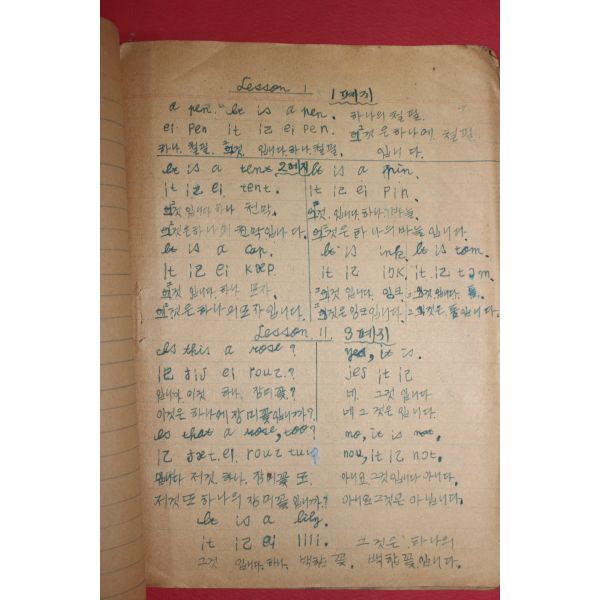 Lesson 1 1페지
a pen. It is a pen. 하나의 철필.
ei pen it iz ei pen. 그것은 하나에 철필
하나. 철필. 그것. 입니다. 하나. 철필. 입니다.
It is a tent. 2페지
it iz ei tent.
그것. 입니다 하나 천막.
그것은 하나에 천막입니다.
It is a cap.
it iz ei kæp.
그것 입니다. 하나 모자.
그것은 하나의 모자입니다.
It is a pin.
it iz ei pin.
그것. 입니다. 하나. 바늘.
그것은 하나의 바늘입니다.
It is ink. It is tom.
it iz iŋk. it iz tɔm.
그것 입니다. 잉크 그것 입니다. 톰.
그것은 잉크입니다. 그것은 톰입니다.
Lesson 11. 3페지
Is this a rose?
iz ðis ei rouz?
입니까. 이것 하나. 장미꽃?
이것은 하나에 장미꽃입니까?
Is that a rose, too?
iz ðæt. ei. rouz tu:
입니다 저것. 하나. 장미꽃 또.
저것 또 하나의 장미꽃 입니까?
yes, it is.
jes it iz
네. 그것 입니다
네 그것은 입니다.
no, it is not,
nou, it iz nɔt.
아니요 그것 입니다 아니.
아니요 그것은 아닙니다.
It is a lily.
it iz ei lili. 그것은 하나의
그것 입니다. 하나. 백합꽃. 백합꽃입니다.